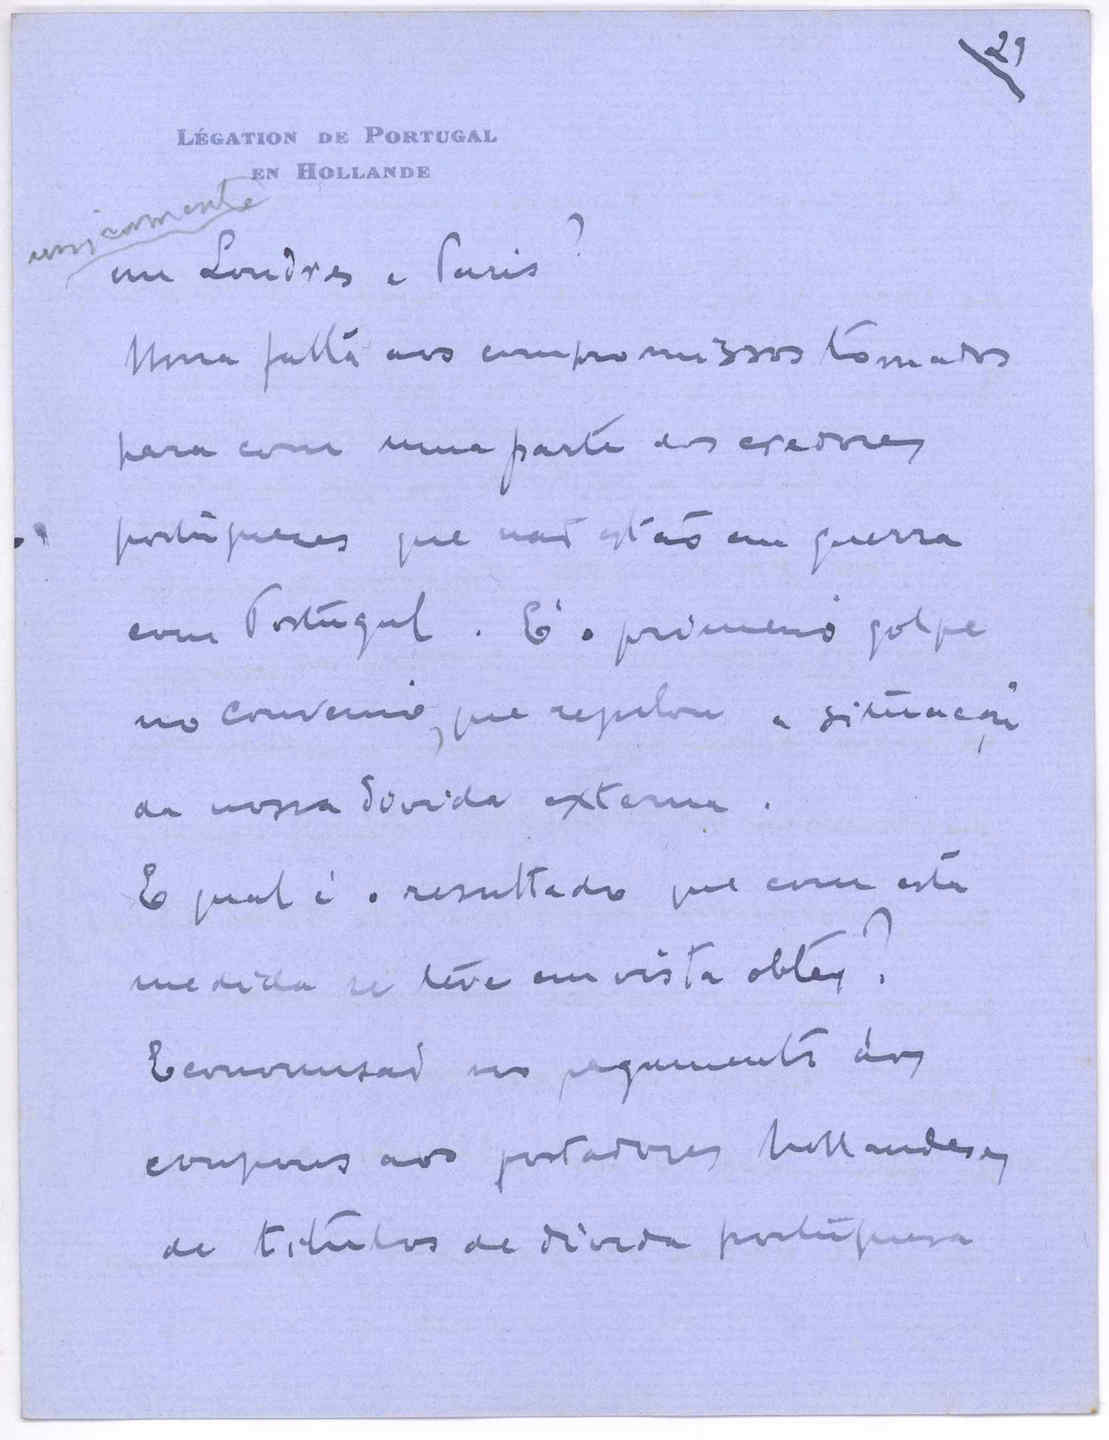 29
LÉGATION DE PORTUGAL
EN HOLLANDE
unicamente
em Londres e Paris?
Numa falta aos compromissos tomados
para com uma parte dos credores
portuguezes que não estão em guerra
com Portugal. E' o primeiro golpe
no convenio, que regulou a situação
da nossa divida externa.
E qual é o resultado que com esta
medida se teve em vista obter?
Economisar no pagamento dos
coupons aos portadores hollandeses
de titulos de divida portuguesa